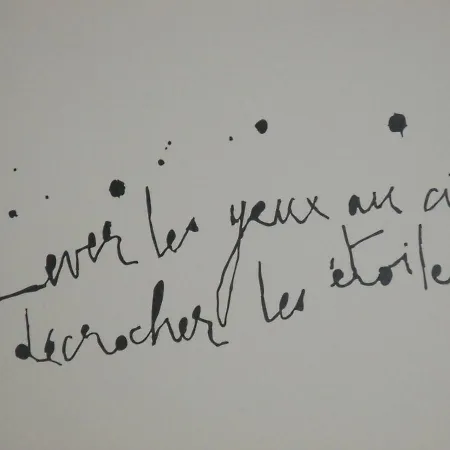 Lever les yeux au ci
décrocher les étoile